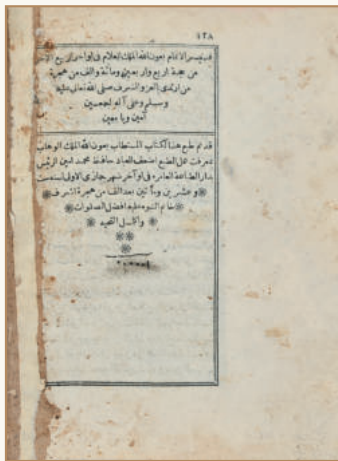 ١٢٨
تيسر الاتمام بعون الله الملك العلام في اواخر ربيع
من سنة اربع واربعين ومائة والف من هجرة
من ارتدى بالعز والشرف صلى الله تعالى عليه
وسلم وعلى آله اجمعين
آمين ويا معين
قد تم طبع هذا الكتاب المستطاب بعون الله الملك الوهاب
اضعف العباد حافظ محمد امين الرئيس
بدار الطباعة العامره في اواخر شهر جمادى الاولى لسنة ست
وعشرين ومأتين بعد الالف من هجرة اشرف
خاتم النبوه عليه افضل الصلوات
واكمل التحيه